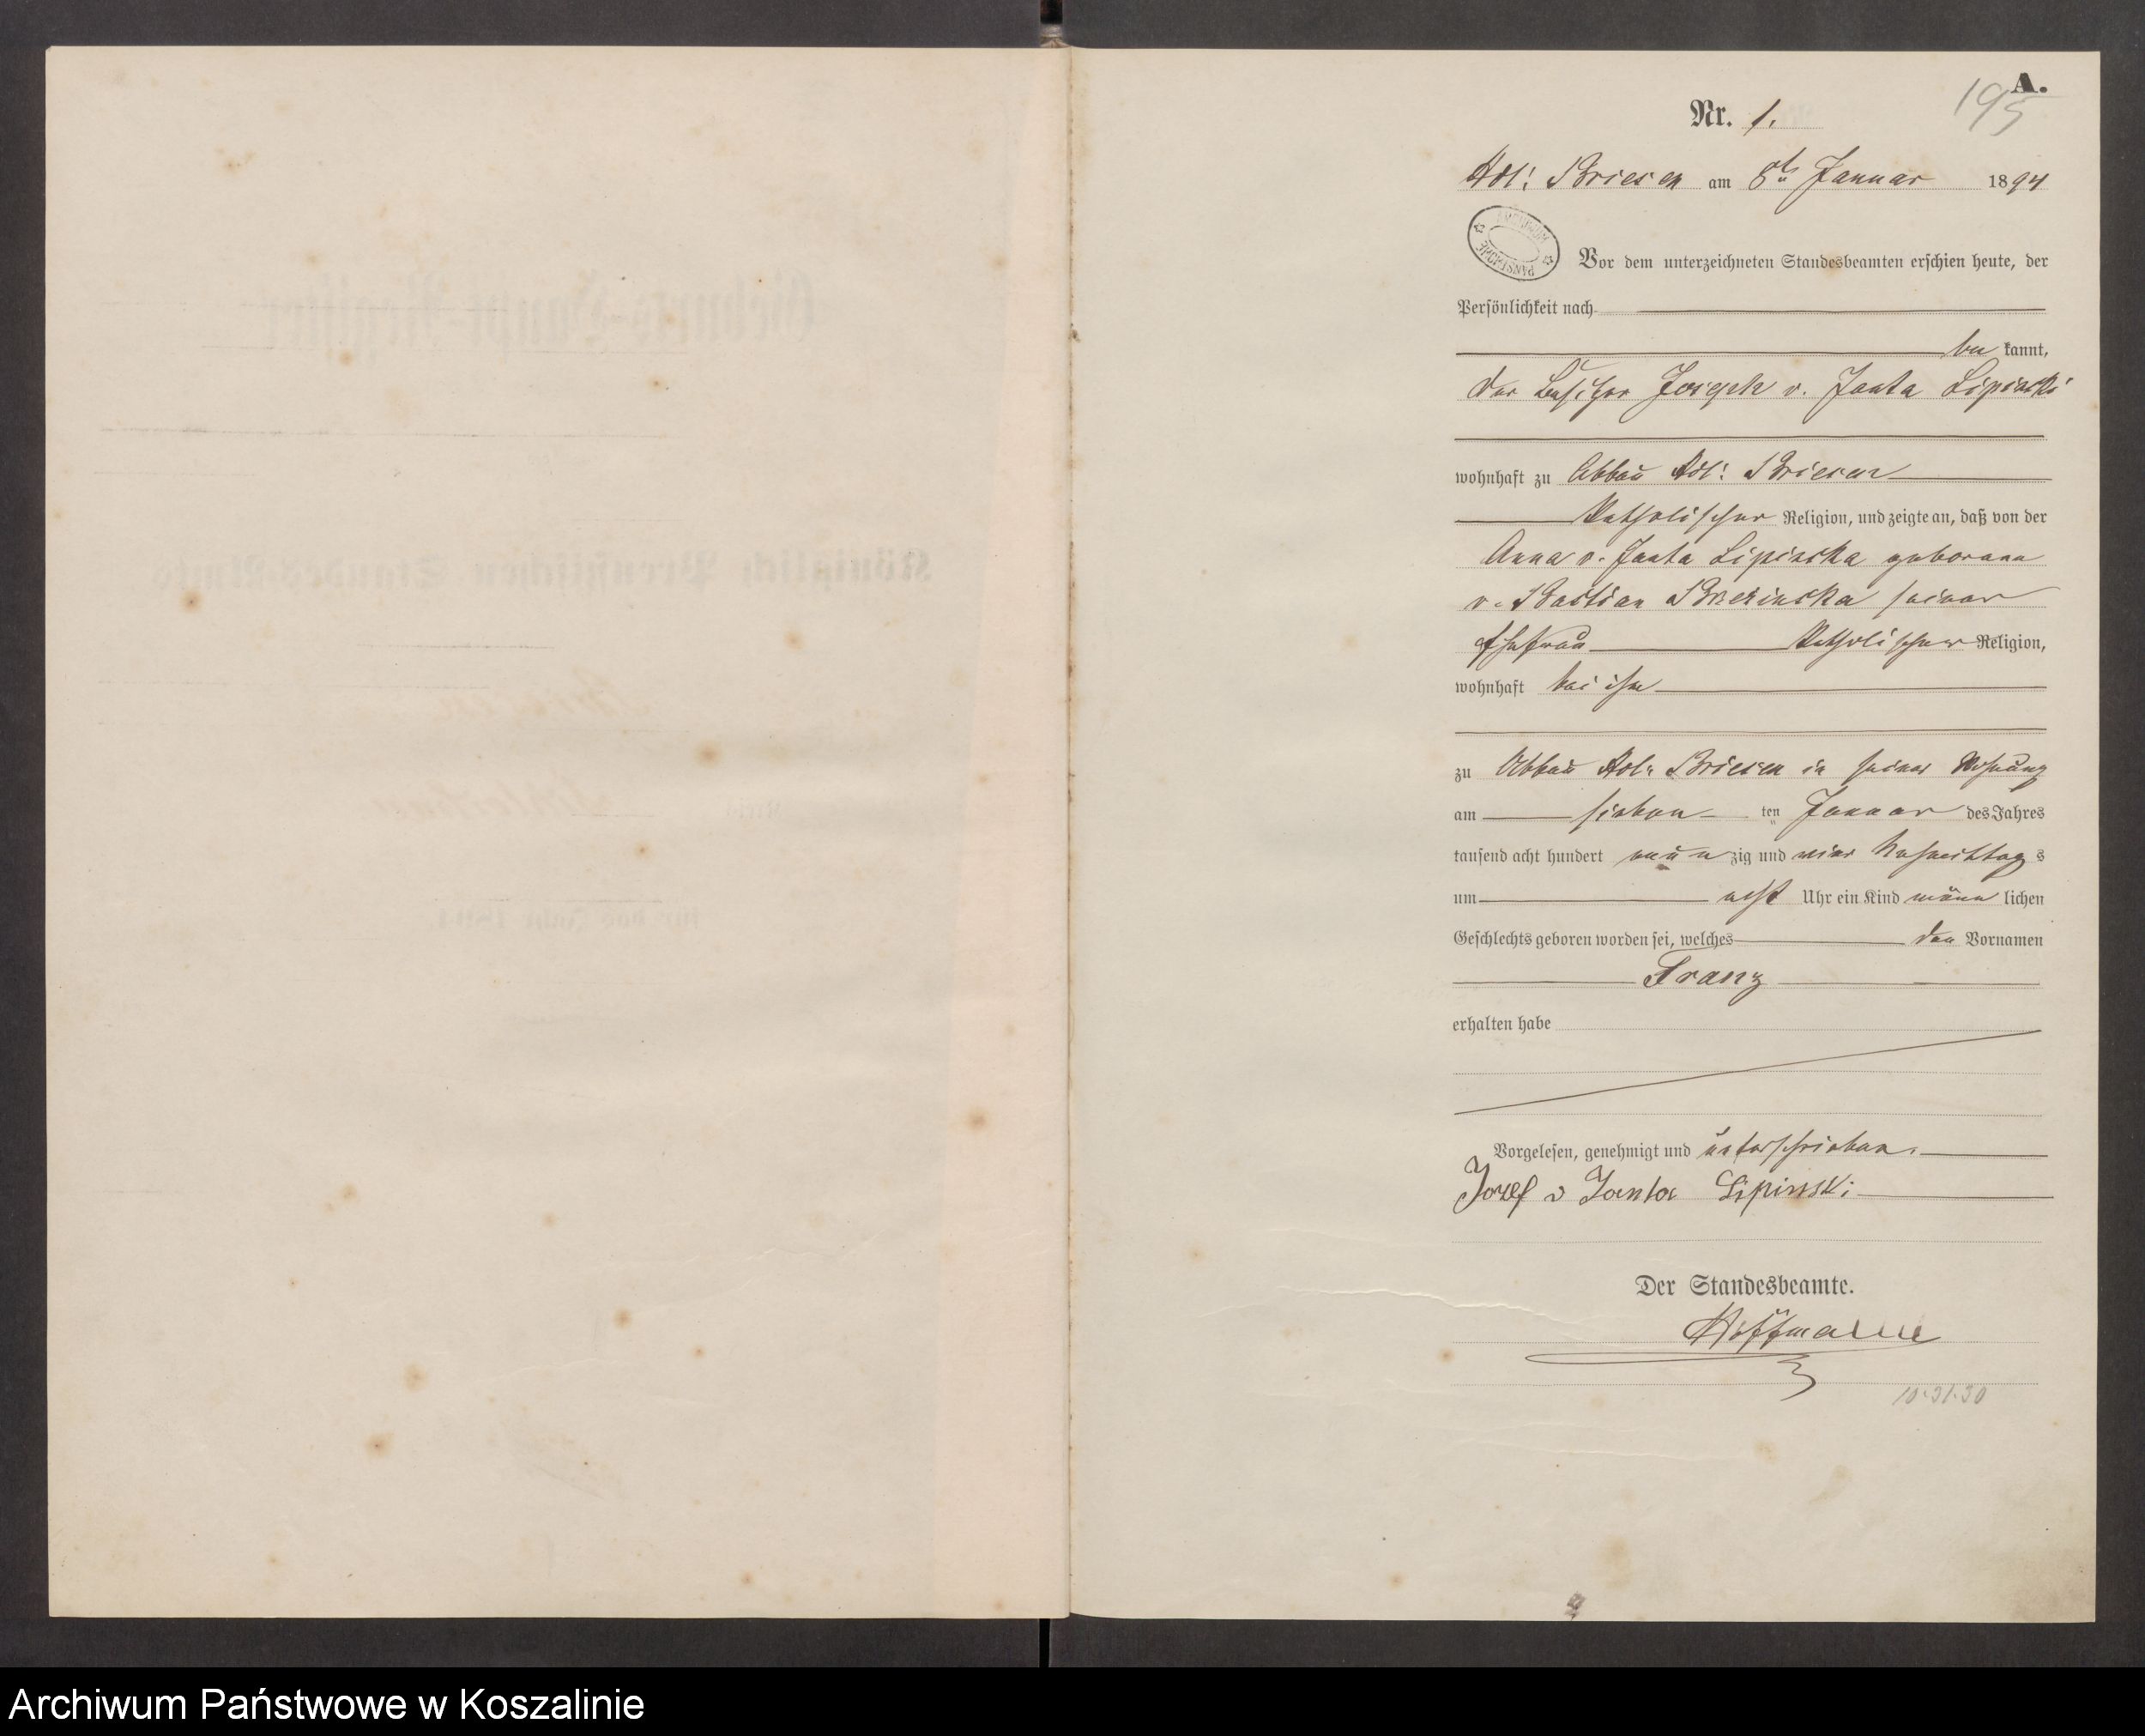 A.
195
Nr. 1.
Adl: Briesen am 8ten Januar 1894
ARCHIWUM PAŃSTWOWE
Vor dem unterzeichneten Standesbeamten erschien heute, der
Persönlichkeit nach
be kannt,
der Besitzer Joseph v. Janta Lipinski
wohnhaft zu Abbau Adl: Briesen
katholischer Religion, und zeigte an, daß von der
Anna v. Janta Lipinska geborene
v. seiner
Ehefrau katholischer Religion,
wohnhaft bei ihm
zu Abbau Adl: Briesen in seiner Wohnung
am sieben ten Januar des Jahres
tausend acht hundert neun zig und vier Nachmittag s
um acht Uhr ein Kind männ lichen
Geschlechts geboren worden sei, welches den Vornamen
Franz
erhalten habe
Vorgelesen, genehmigt und unterschrieben.
Jozef v Janta Lipinski
Der Standesbeamte.
Hoffmann
10.31.30
Geburts-Haupt-Register
Königlich Preußischen Standes-Amts
Briesen
Kreis Schlochau
für das Jahr 1894
Archiwum Państwowe w Koszalinie